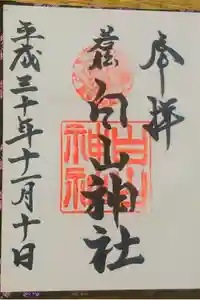 奉拝
白山神社
白山
神社
平成三十年十一月十日